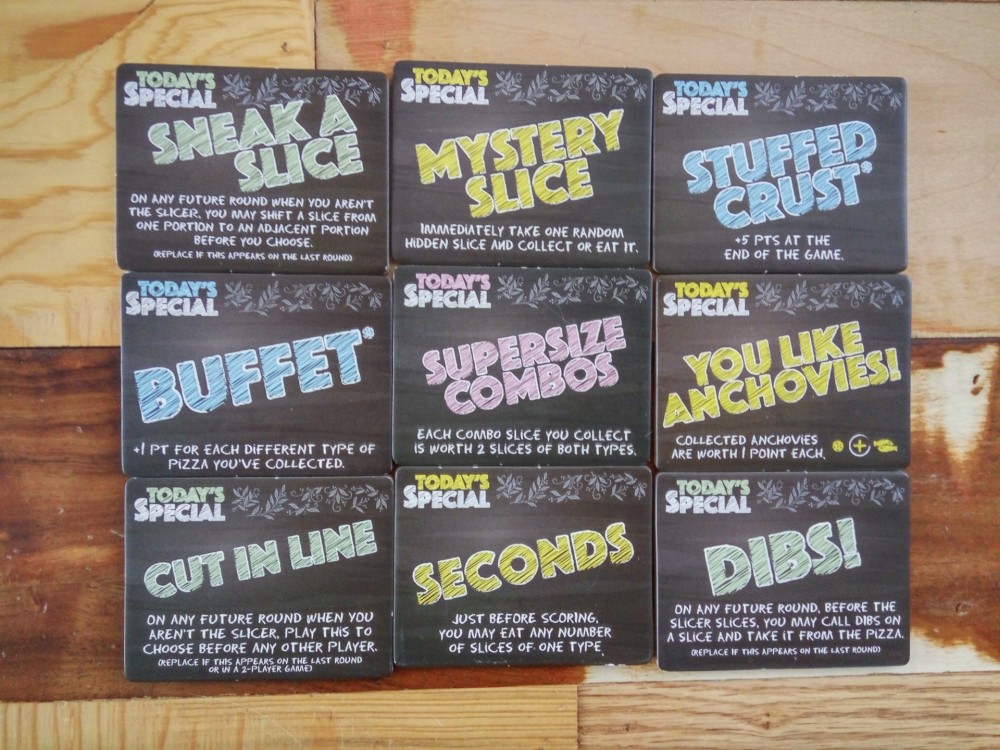 TODAY'S
SPECIAL
SNEAK A
SLICE
ON ANY FUTURE ROUND WHEN YOU AREN'T
THE SLICER, YOU MAY SHIFT A SLICE FROM
ONE PORTION TO AN ADJACENT PORTION
BEFORE YOU CHOOSE.
(REPLACE IF THIS APPEARS ON THE LAST ROUND)
TODAY'S
SPECIAL
MYSTERY
SLICE
IMMEDIATELY TAKE ONE RANDOM
HIDDEN SLICE AND COLLECT OR EAT IT.
TODAY'S
SPECIAL
STUFFED
CRUST*
+5 PTS AT THE
END OF THE GAME.
TODAY'S
SPECIAL
BUFFET*
+1 PT FOR EACH DIFFERENT TYPE OF
PIZZA YOU'VE COLLECTED.
TODAY'S
SPECIAL
SUPERSIZE
COMBOS
EACH COMBO SLICE YOU COLLECT
IS WORTH 2 SLICES OF BOTH TYPES.
TODAY'S
SPECIAL
YOU LIKE
ANCHOVIES!
COLLECTED ANCHOVIES
ARE WORTH 1 POINT EACH.
TODAY'S
SPECIAL
CUT IN LINE
ON ANY FUTURE ROUND WHEN YOU
AREN'T THE SLICER, PLAY THIS TO
CHOOSE BEFORE ANY OTHER PLAYER.
(REPLACE IF THIS APPEARS ON THE LAST ROUND
OR IN A 2-PLAYER GAME)
TODAY'S
SPECIAL
SECONDS
JUST BEFORE SCORING,
YOU MAY EAT ANY NUMBER
OF SLICES OF ONE TYPE.
TODAY'S
SPECIAL
DIBS!
ON ANY FUTURE ROUND, BEFORE THE
SLICER SLICES, YOU MAY CALL DIBS ON
A SLICE AND TAKE IT FROM THE PIZZA.
(REPLACE IF THIS APPEARS ON THE LAST ROUND)